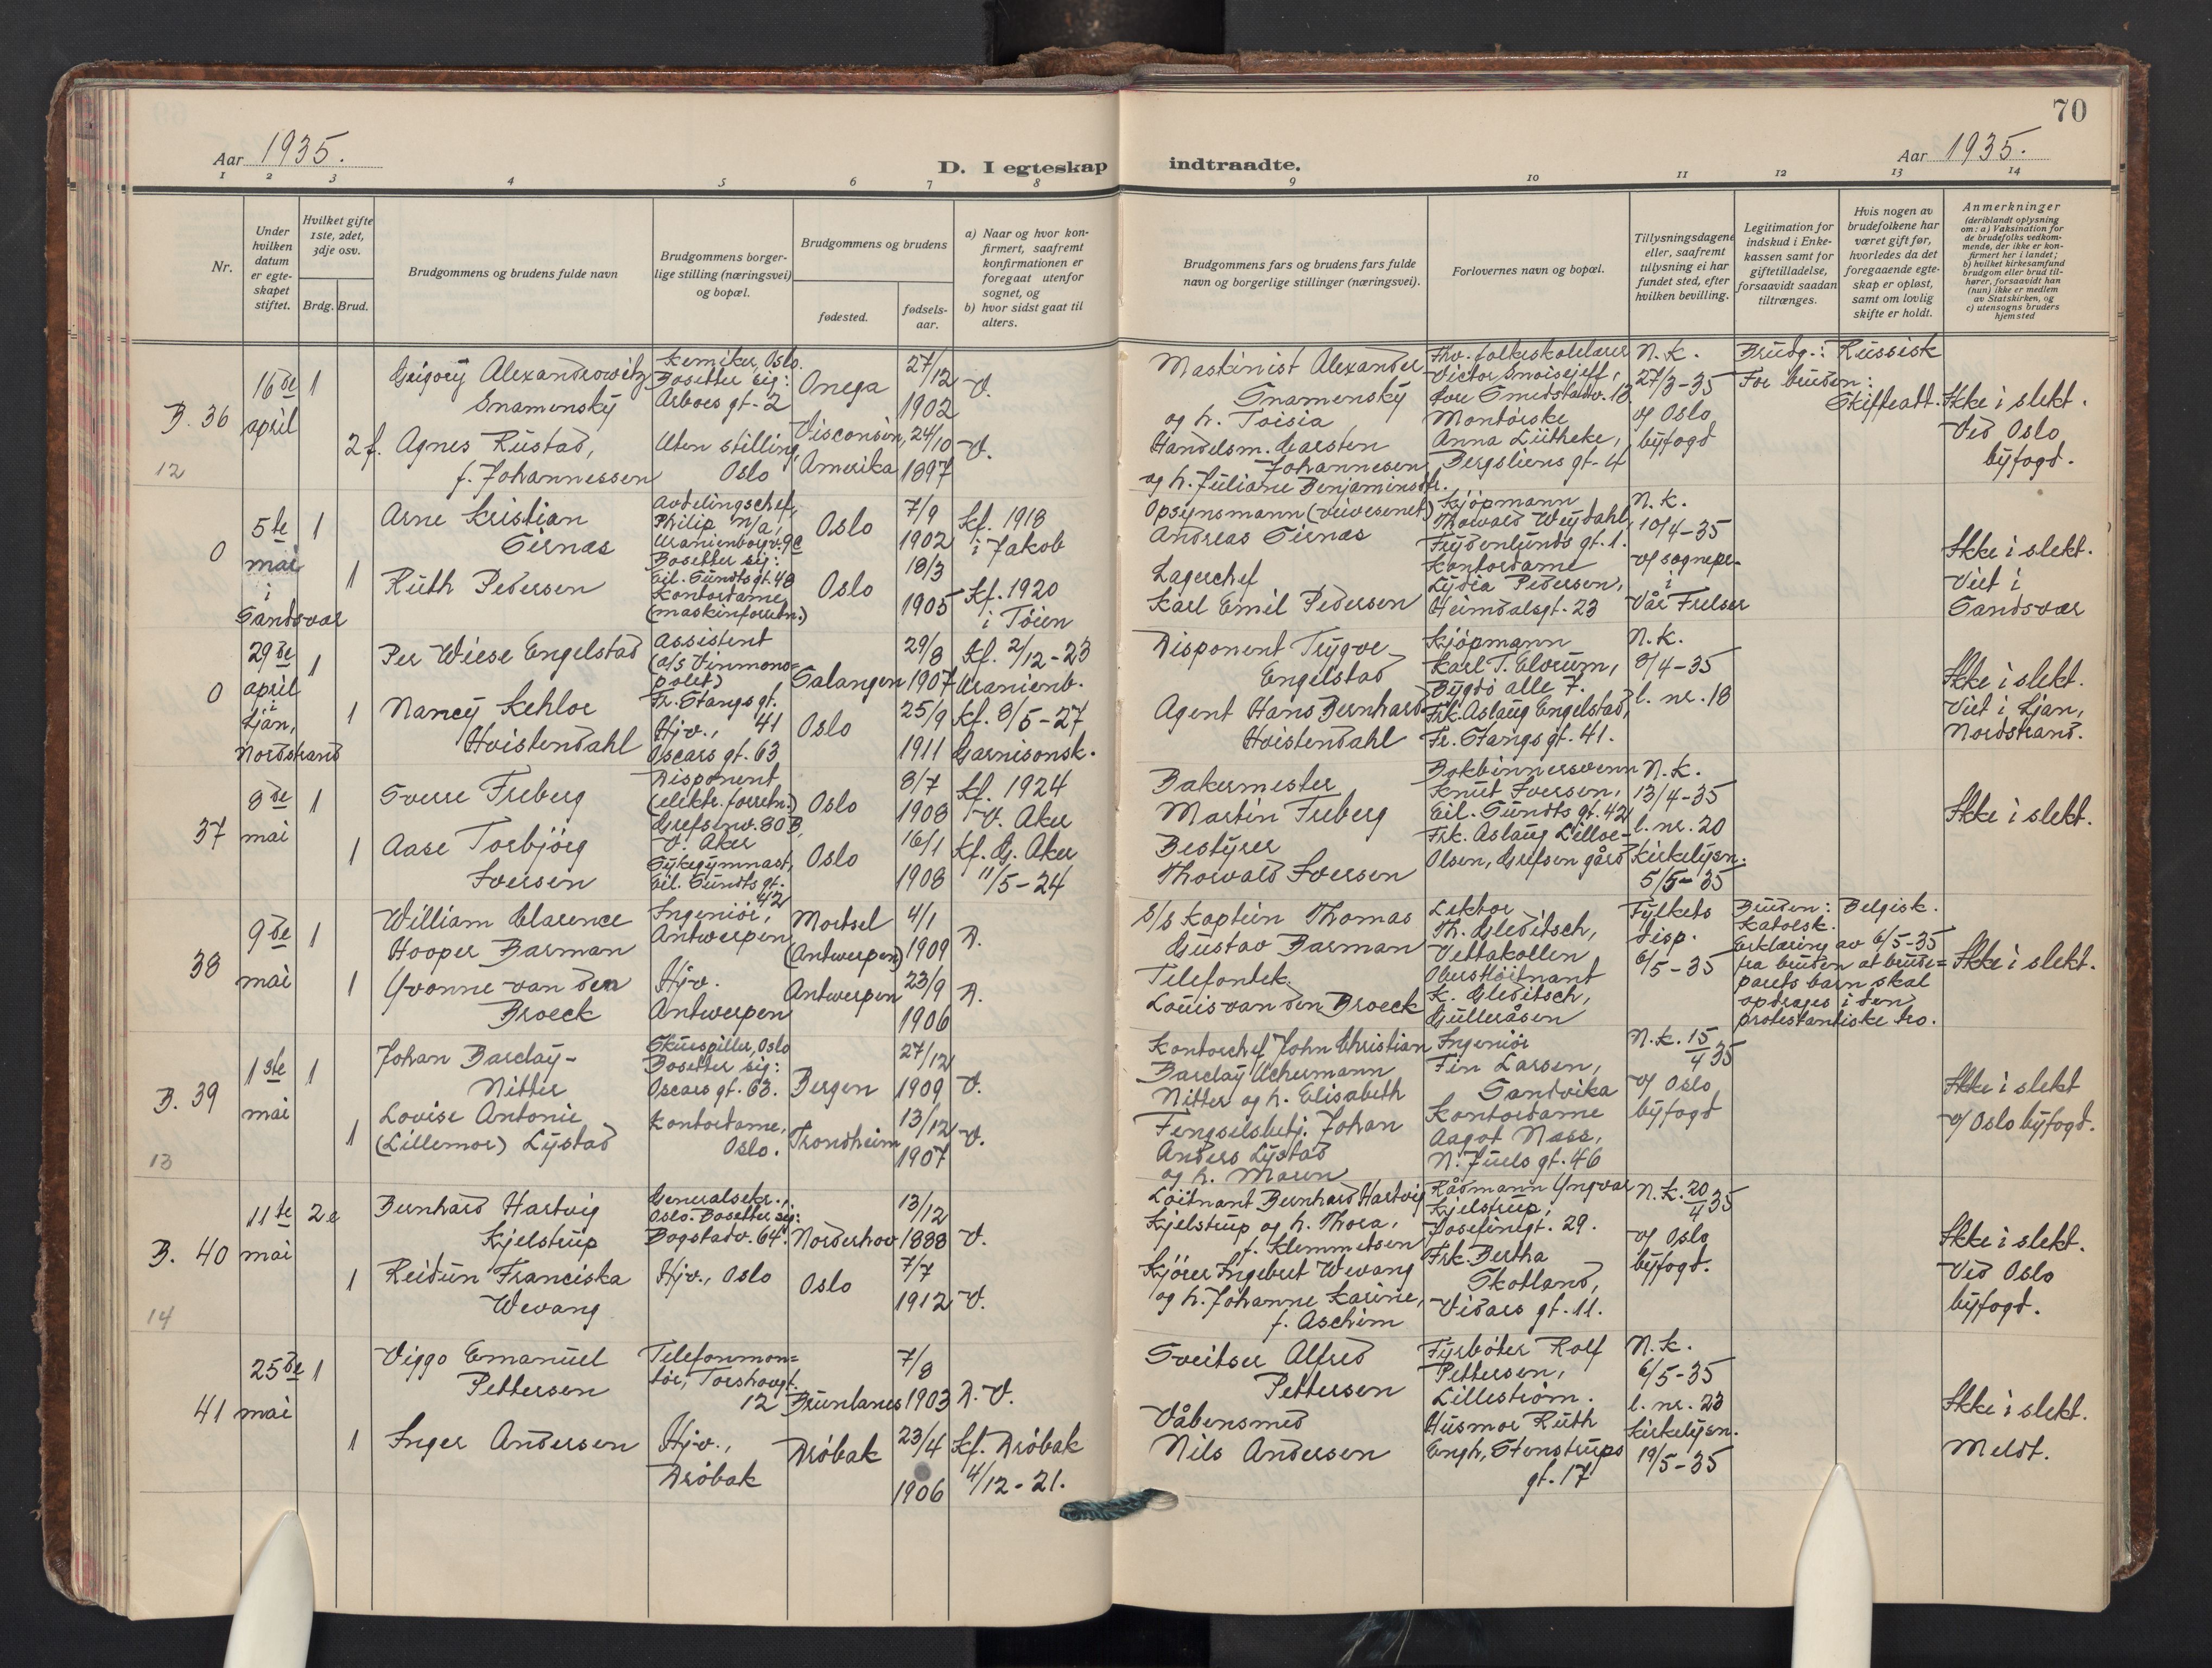 70
Aar 1935.
D. I egteskap indtraadte.
Aar 1935.
1 2 3 4 5 6 7 8 9 10 11 12 13 14
Nr.
Under hvilken datum er egte-skapet stiftet.
Hvilket gifte 1ste, 2det, 3dje osv.
Brdg. Brud.
Brudgommens og brudens fulde navn
Brudgommens borger-lige stilling (næringsvei) og bopæl.
Brudgommens og brudens
fødested.
fødsels-aar.
a) Naar og hvor kon-firmert, saafremt konfirmationen er foregaat utenfor sognet, og
b) hvor sidst gaat til alters.
Brudgommens fars og brudens fars fulde navn og borgerlige stillinger (næringsvei).
Forlovernes navn og bopæl.
Tillysningsdagene eller, saafremt tillysning ei har fundet sted, efter hvilken bevilling.
Legitimation for indskud i Enke-kassen samt for giftetilladelse, forsaavidt saadan tiltrænges.
Hvis nogen av brudefolkene har været gift før, hvorledes da det foregaaende egte-skap er opløst, samt om lovlig skifte er holdt.
Anmerkninger
(deriblandt oplysning om: a) Vaksination for de brudefolks vedkom-mende, der ikke er kon-firmert her i landet;
b) hvilket kirkesamfund brudgom eller brud til-hører, forsaavidt han (hun) ikke er medlem av Statskirken, og
c) utensogns bruders hjemsted
B. 36
12
16de april
1
Grigorij Alexandrowitz Snamensky
Kemiker, Oslo.
Bosetter sig:
Arboes gt. 2
Onega
27/12 1902
V.
Maskinist Alexander Snamensky
og h. Taisia
Frv. folkeskolelærer
Victor
N. K.
27/3-35
v/ Oslo byfogd
Brudg.: Russisk
For bruden:
Skifteatt.
Ikke i slekt.
Ved Oslo byfogd.
2 f.
Agnes Rustad,
f. Johannessen
Uten stilling,
Oslo
Visconsin, Amerika
24/10 1897
V.
Handelsm. Carsten Johannesen
og h. Juliane Benjaminsdtr.
Montörske
Anna Lütheke,
Bergsliens gt. 4
0
5te mai
i
Sandsvær
1
Arne Kristian Girnas
Avdelingschef,
Philip n/a,
Uranienborgv. 9c
Bosetter sig:
Eil. Sundts gt. 48
Oslo
7/9 1902
Kf. 1918
i Jakob
Opsynsmann (veivesenet)
Andreas Girnas
Kjöpmann
Thorvald Weydahl,
Frydenlunds gt. 1.
N. K.
10/4-35
v/ sognepr.
i
Vår Frelser
Ikke i slekt.
Viet i
Sandsvær
1
Ruth Pedersen
Kontordame
(maskinforretn.)
Oslo
18/3 1905
Kf. 1920
i Töien
Lagerchef
Karl Emil Pedersen
Kontordame
Lydia Pedersen,
Heimdalsgt. 23
0
29de april
i
Ljan,
Nordstrand
1
Per Wiese Engelstad
Assistent
(a/s Vinmono=
polet)
Fr. Stangs gt. 41
Salangen
29/8 1907
Kf. 2/12-23
Uranienb.
Disponent Trygve Engelstad
Kjöpmann
Karl T. Elvrum,
Bygdö alle 7.
N. K.
8/4-35
l. nr. 18
Ikke i slekt.
Viet i Ljan,
Nordstrand.
1
Nancy Kehlor Hvistendahl
Hjv.,
Oscars gt. 63
Oslo
25/9 1911
Kf. 8/5-27
Garnisonsk.
Agent Hans Bernhard Hvistendahl
Frk. Aslaug Engelstad,
Fr. Stangs gt. 41.
37
8de mai
1
Sverre Freberg
Disponent
(elektr. forretn.)
Grefsenv. 80 B,
V. Aker
Oslo
8/7 1908
Kf. 1924
V. Aker
Bakermester
Martin Freberg
Bokbinnersvenn
Knut Iversen,
Eil. Sundts gt. 42
N. K.
13/4-35
l. nr. 20
Kirkelysn.
5/5-35
Ikke i slekt.
1
Aase Torbjörg Iversen
Sykegymnast,
Eil. Sundts gt. 42
Oslo
16/1 1908
Kf. G. Aker
11/5-24
Bestyrer
Thorvald Iversen
Frk. Aslaug Lilloe-
Olsen, Grefsen gård
38
9de mai
1
William Clarence
Hooper Barman
Ingeniör,
Antwerpen
Mortsel
(Antwerpen)
4/1 1909
D.
S/s kaptein Thomas
Gustav Barman
Lektor
Th. Gleditsch,
Vettakollen
Fylkets
disp.
6/5-35
Bruden: Belgisk.
Katolsk.
Erklæring av 6/5-35
fra bruden at brude=
parets barn skal
opdrages i den
protestantiske tro.
Ikke i slekt.
1
Yvonne van den
Broeck
Hjv.
Antwerpen
Antwerpen
23/9 1906
D.
Telefontek.
Louis van den Broeck
Oberstlöitnant
K. Gleditsch,
Gulleråsen
B. 39
13
1ste mai
1
Johan Barclay-
Nitter
Skuespiller, Oslo
Bosetter sig:
Oscars gt. 63.
Bergen
27/12 1909
V.
Kontorchef John Christian
Barclay Uchermann
Nitter og h. Elisabeth
Ingeniör
Fin Larsen,
Sandvika
N. K. 15/4 35
v/ Oslo
byfogd
Ikke i slekt
v/ Oslo byfogd.
1
Lovise Antonie
(Lillemor) Lystad
Kontordame,
Oslo.
Trondheim
13/12 1907
V.
Fengselsbetj. Johan
Anders Lystad
og h. Maren
Kontordame
Aagot Næss,
N. Juels gt. 46
B. 40
14
11te mai
2 e
Bernhard Hartvig
Kjelstrup
Generalsekr.,
Oslo. Bosetter sig:
Bogstadv. 64.
Norderhov
13/12 1888
V.
Löitnant Bernhard Hartvig
Kjelstrup og h. Thora,
f. Klemmetsen
Rådmann Yngvar
Kjelstrup,
Josefinegt. 29.
N. K. 20/4 35
v/ Oslo
byfogd.
Ikke i slekt.
Ved Oslo
byfogd.
1
Reidun Franciska
Wevang
Hjv., Oslo
Oslo
7/7 1912
V.
Kjörer Ingebret Wevang
og h. Johanne Karine,
f. Aschim
Frk. Bertha
Skotland,
Vidars gt. 11.
41
25de mai
1
Viggo Emanuel
Pettersen
Telefonmon=
tör, Torshovgt.
12
Brunlanes
7/8 1903
D. V.
Sveitser Alfred
Pettersen
Fyrböter Rolf
Pettersen,
Lilleström.
N. K.
6/5-35
l. nr. 23
Kirkelysn.
19/5-35
Ikke i slekt.
Meldt.
1
Inger Andersen
Hjv.,
Dröbak
Dröbak
23/4 1906
Kf. Dröbak
4/12-21.
Våbensmed
Nils Andersen
Husmor Ruth
Engh, Stenstrups
gt. 17